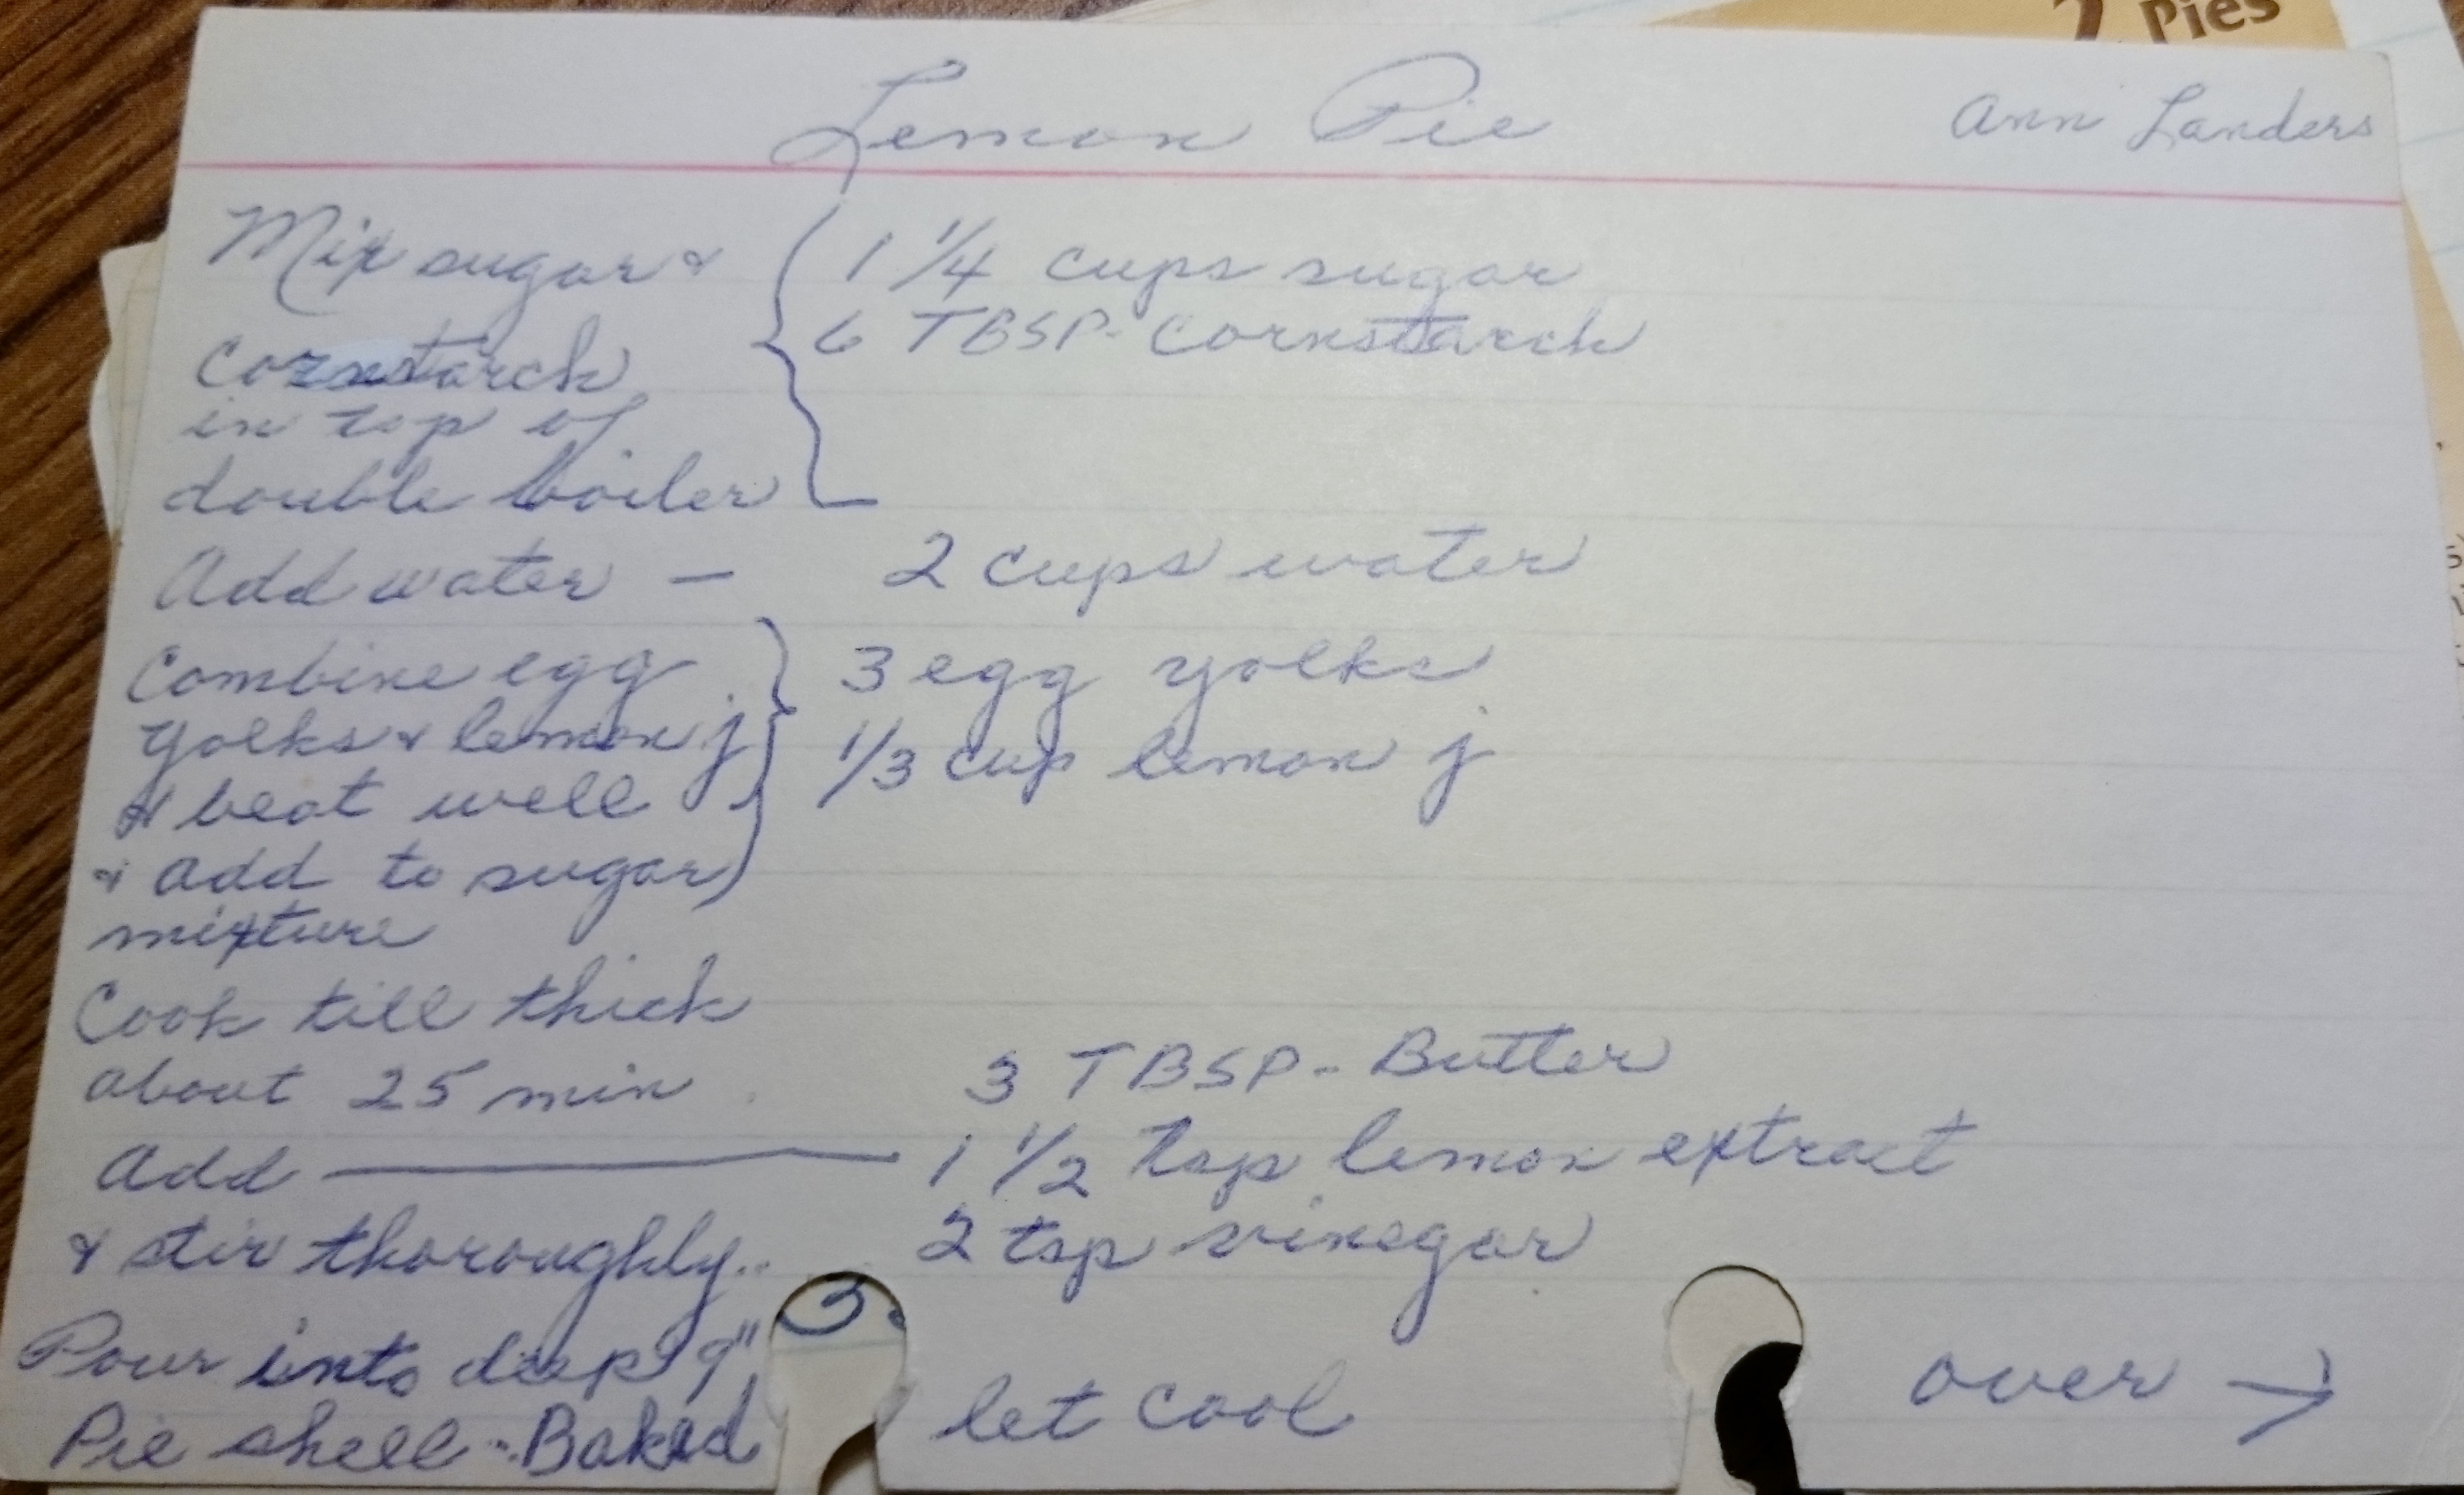 2 Pies
Lemon Pie
Ann Landers
Mix sugar &
cornstarch
in top of
double boiler
1 1/4 cups sugar
6 TBSP. Cornstarch
Add water — 2 cups water
Combine egg
yolks & lemon j
& beat well
& add to sugar
mixture
3 egg yolks
1/3 cup lemon j
Cook till thick
about 25 min
Add —
& stir thoroughly..
3 TBSP. Butter
1 1/2 tsp lemon extract
2 tsp vinegar
Pour into deep 9"
Pie shell - Baked
let cool
over →
3